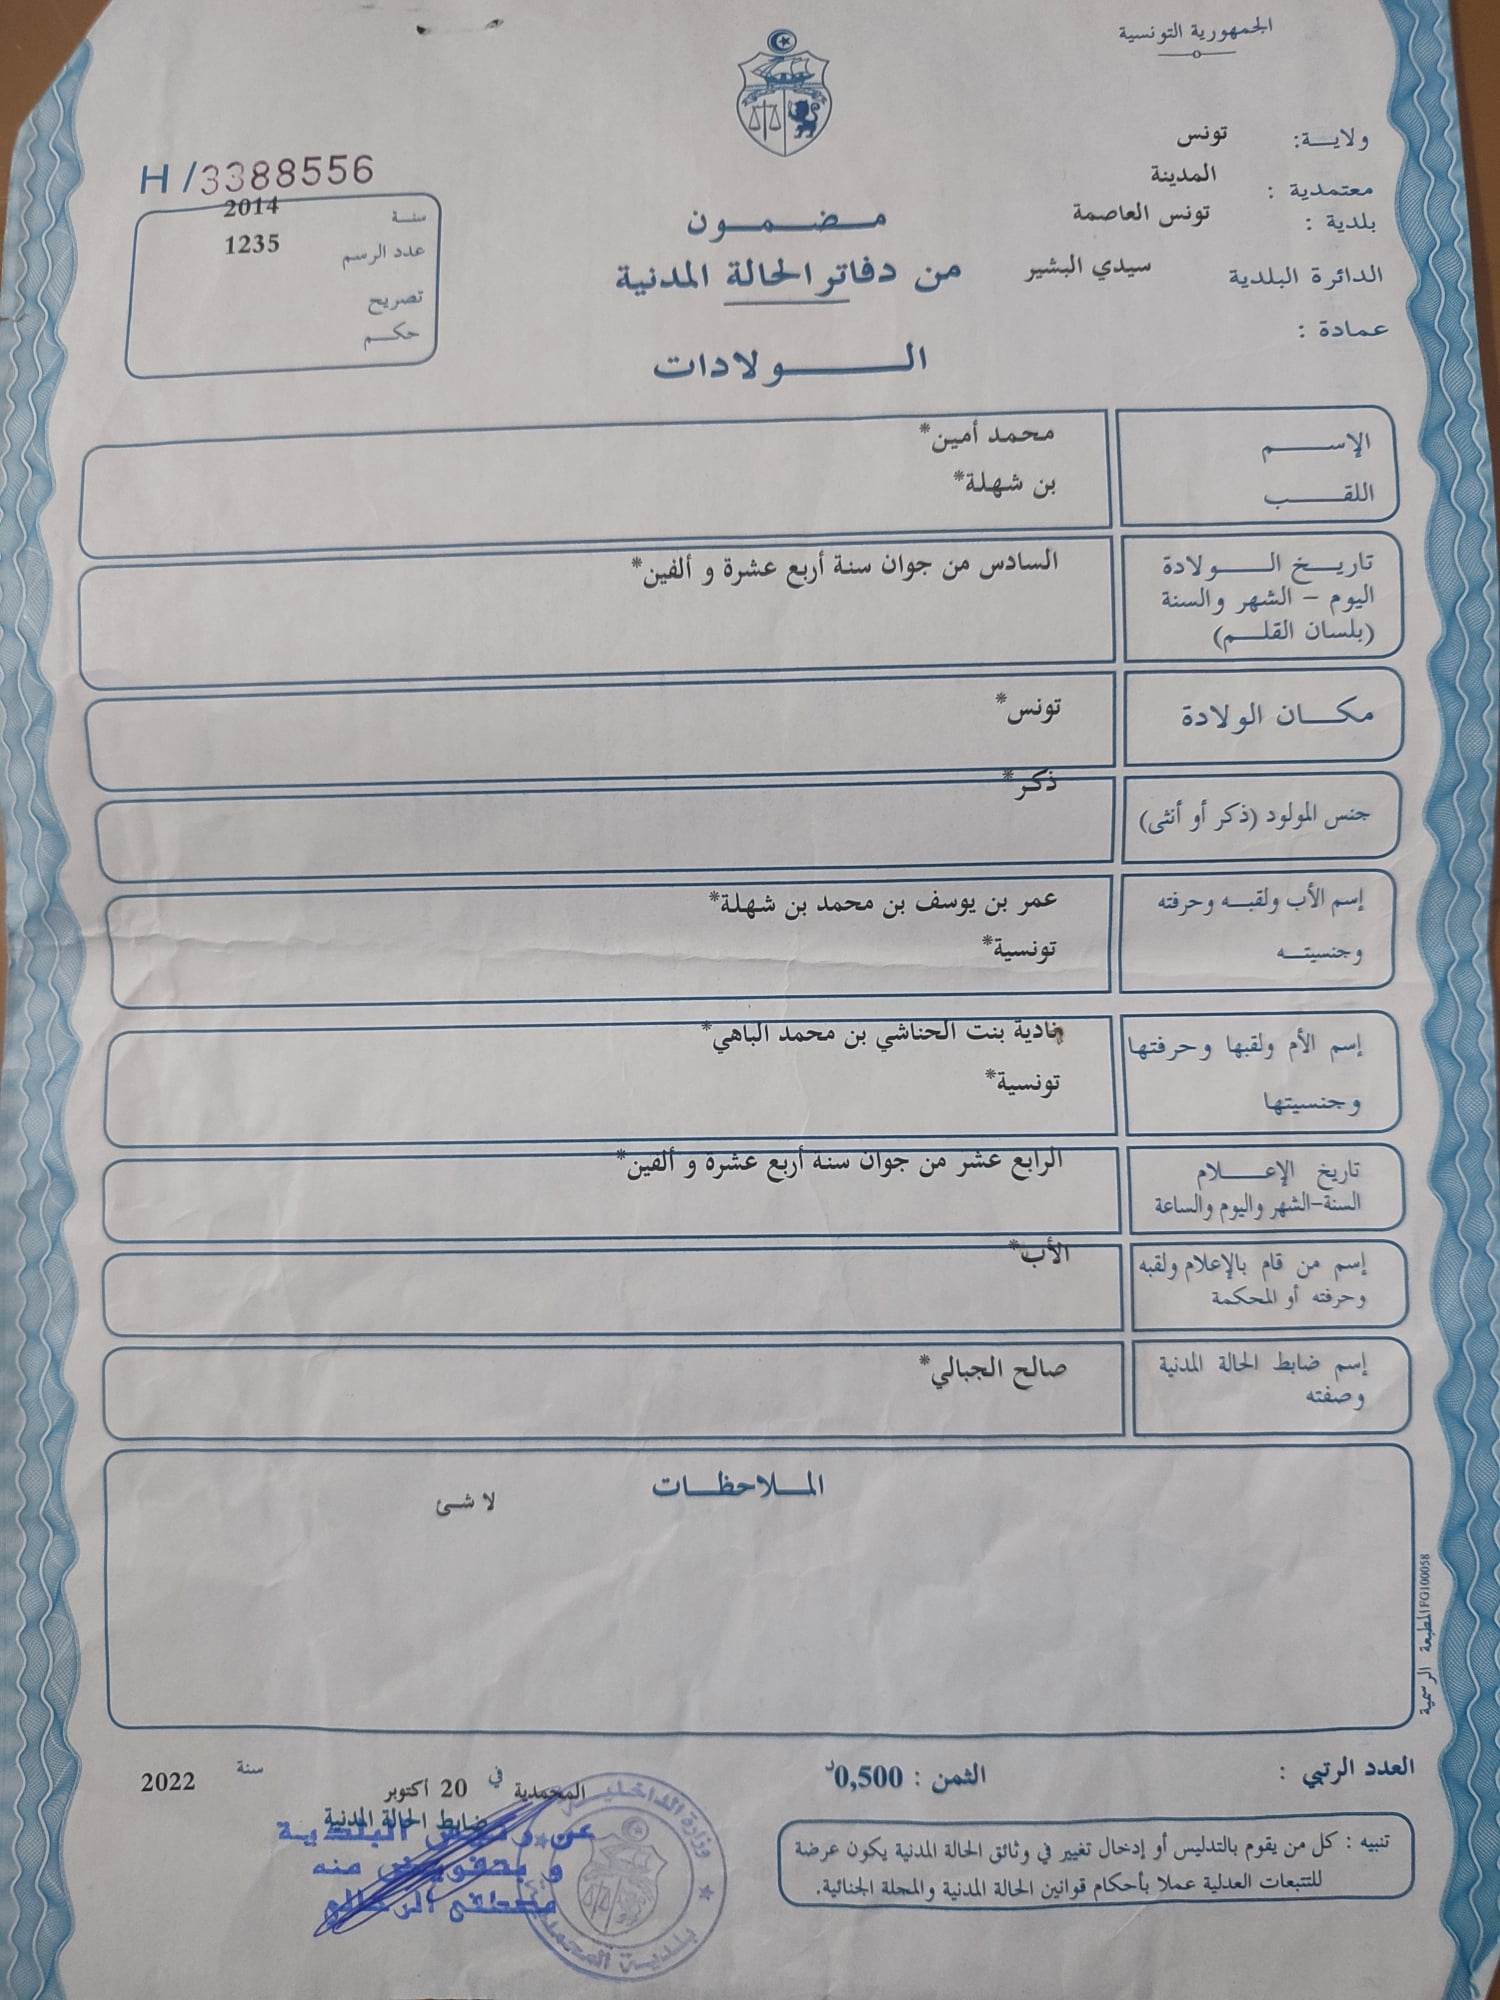 الجمهورية التونسية
ولاية: تونس
معتمدية : المدينة
بلدية : تونس العاصمة
الدائرة البلدية سيدي البشير
عمادة :
مضمون
من دفاتر الحالة المدنية
الولادات
H/3388556
سنة 2014
عدد الرسم 1235
تصريح
حكم
الإسم محمد أمين*
اللقب بن شهلة*
تاريخ الولادة السادس من جوان سنة أربع عشرة و ألفين*
اليوم - الشهر والسنة
(بلسان القلم)
مكان الولادة تونس*
جنس المولود (ذكر أو أنثى) ذكر*
إسم الأب ولقبه وحرفته عمر بن يوسف بن محمد بن شهلة*
وجنسيته تونسية*
إسم الأم ولقبها وحرفتها نادية بنت الحناشي بن محمد الباهي*
وجنسيتها تونسية*
تاريخ الإعلام الرابع عشر من جوان سنة أربع عشرة و ألفين*
السنة-الشهر واليوم والساعة
إسم من قام بالإعلام ولقبه الأب*
وحرفته أو المحكمة
إسم ضابط الحالة المدنية صالح الجبالي*
وصفته
الملاحظات
لا شئ
المطبعة الرسمية FG100058
العدد الرتبي :
الثمن : 0,500د
المحمدية في 20 أكتوبر سنة 2022
ضابط الحالة المدنية
عن رئيس البلدية
و بتفويض منه
مصطفى
وزارة الداخلية
بلدية المحمدية
تنبيه : كل من يقوم بالتدليس أو إدخال تغيير في وثائق الحالة المدنية يكون عرضة
للتتبعات العدلية عملا بأحكام قوانين الحالة المدنية والمجلة الجنائية.